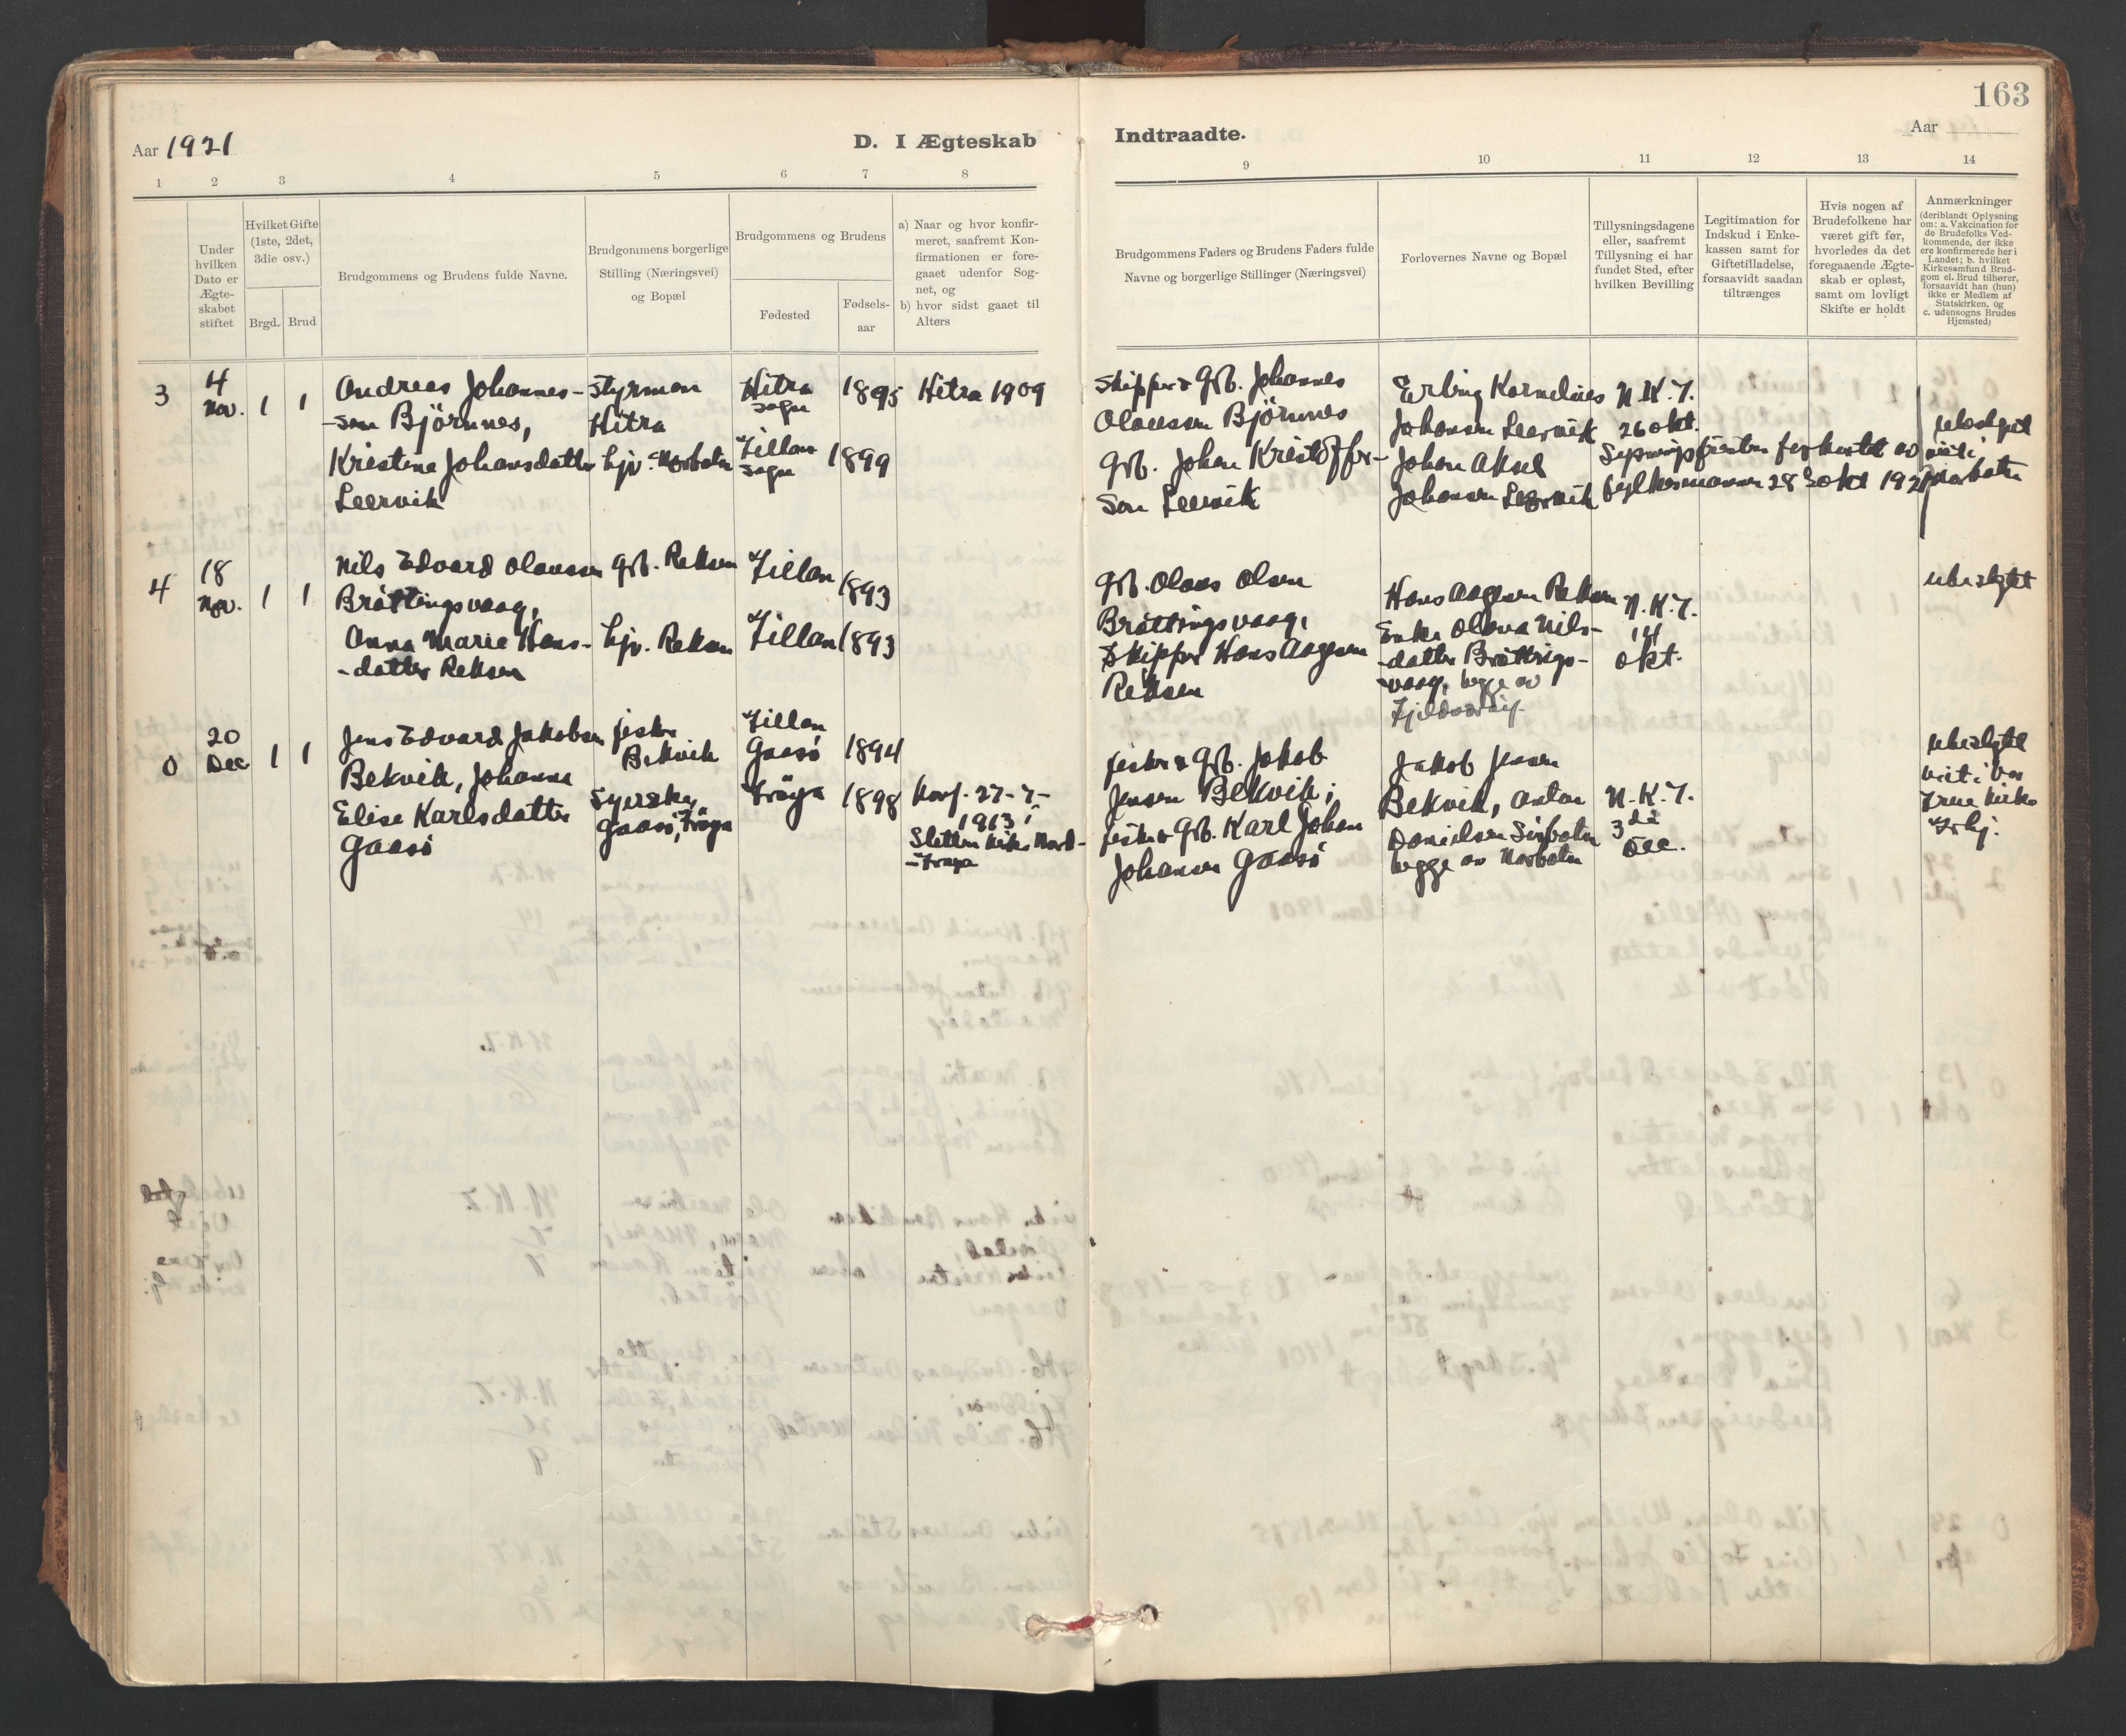 163
Aar 1921
D. I Ægteskab
Indtraadte.
Aar
1 2 3 4 5 6 7 8
9 10 11 12 13 14
Under
hvilken
Dato er
Ægte-
skabet
stiftet
Hvilket Gifte
(1ste, 2det,
3die osv.)
Brgd. Brud
Brudgommens og Brudens fulde Navne.
Brudgommens borgerlige
Stilling (Næringsvei)
og Bopæl
Brudgommens og Brudens
Fødested
Fødsels-
aar
a) Naar og hvor konfir-
meret, saafremt Kon-
firmationen er fore-
gaaet udenfor Sog-
net, og
b) hvor sidst gaaet til
Alters
Brudgommens Faders og Brudens Faders fulde
Navne og borgerlige Stillinger (Næringsvei)
Forlovernes Navne og Bopæl
Tillysningsdagene
eller, saafremt
Tillysning ei har
fundet Sted, efter
hvilken Bevilling
Legitimation for
Indskud i Enke-
kassen samt for
Giftetilladelse,
forsaavidt saadan
tiltrænges
Hvis nogen af
Brudefolkene har
været gift før,
hvorledes da det
foregaaende Ægte-
skab er opløst,
samt om lovligt
Skifte er holdt
Anmærkninger
(deriblandt Oplysning
om: a. Vakcination for
de Brudefolks Ved-
kommende, der ikke
ere konfirmerede her i
Landet; b. hvilket
Kirkesamfund Brud-
gom el. Brud tilhører,
forsaavidt han (hun)
ikke er Medlem af
Statskirken, og
c. udensogns Brudes
Hjemsted)
3
4
Nov.
1 1
Andreas Johannes-
-sen Björnnes,
Kristine Johansdatter
Leervik
Styrman
Hitra
hjv. Norbotn
Hitra
sogn
Fillan
sogn
1895
1899
Hitra 1909
Skipper & Gb. Johannes
Olaussen Björnnes
Gb. Johan Kristoffer-
sen Leervik
Erling Kornelius
Johansen Leervik
Johan Aksel
Johansen Leervik
N.K.T.
26 okt.
av
28 okt 1921
ubeslegtet
viet i
Norbotn
4
18
Nov.
1 1
Nils Edvard Olaussen
Bråttingsvaag,
Anna Marie Hans-
-datter Reksen
Gb. Reksen
hjv. Reksen
Fillan
Fillan
1893
1893
Gb. Olaus Olsen
Bråttingsvaag,
Skipper Hans Aagesen
Reksen
Hans Aagesen Reksen
Enke Olava Nils-
-datter Bråttings-
-vaag, begge av
N.K.T.
14
okt.
ubeslegtet
0
20
Dec
1 1
Jens Edvard Jakobsen
Bekvik, Johanna
Elise Karlsdatter
Gaasö
fisker
Bekvik
Syerske,
Gaasö, Fröya
Fillan
Gaasö
Fröya
1894
1898
Konf. 27-7-
1913 i
Sletten kirke Nord-
-Fröya
fisker & Gb. Jakob
Jensen Bekvik;
fisker & Gb. Karl Johan
Johansen Gaasö
Jakob Jensen
Bekvik, Anton
Danielsen Sörbotn
begge av Norbotn
N.K.T.
3de
Dec.
ubeslegtet
viet i Vor
Frue kirke
Trhj.